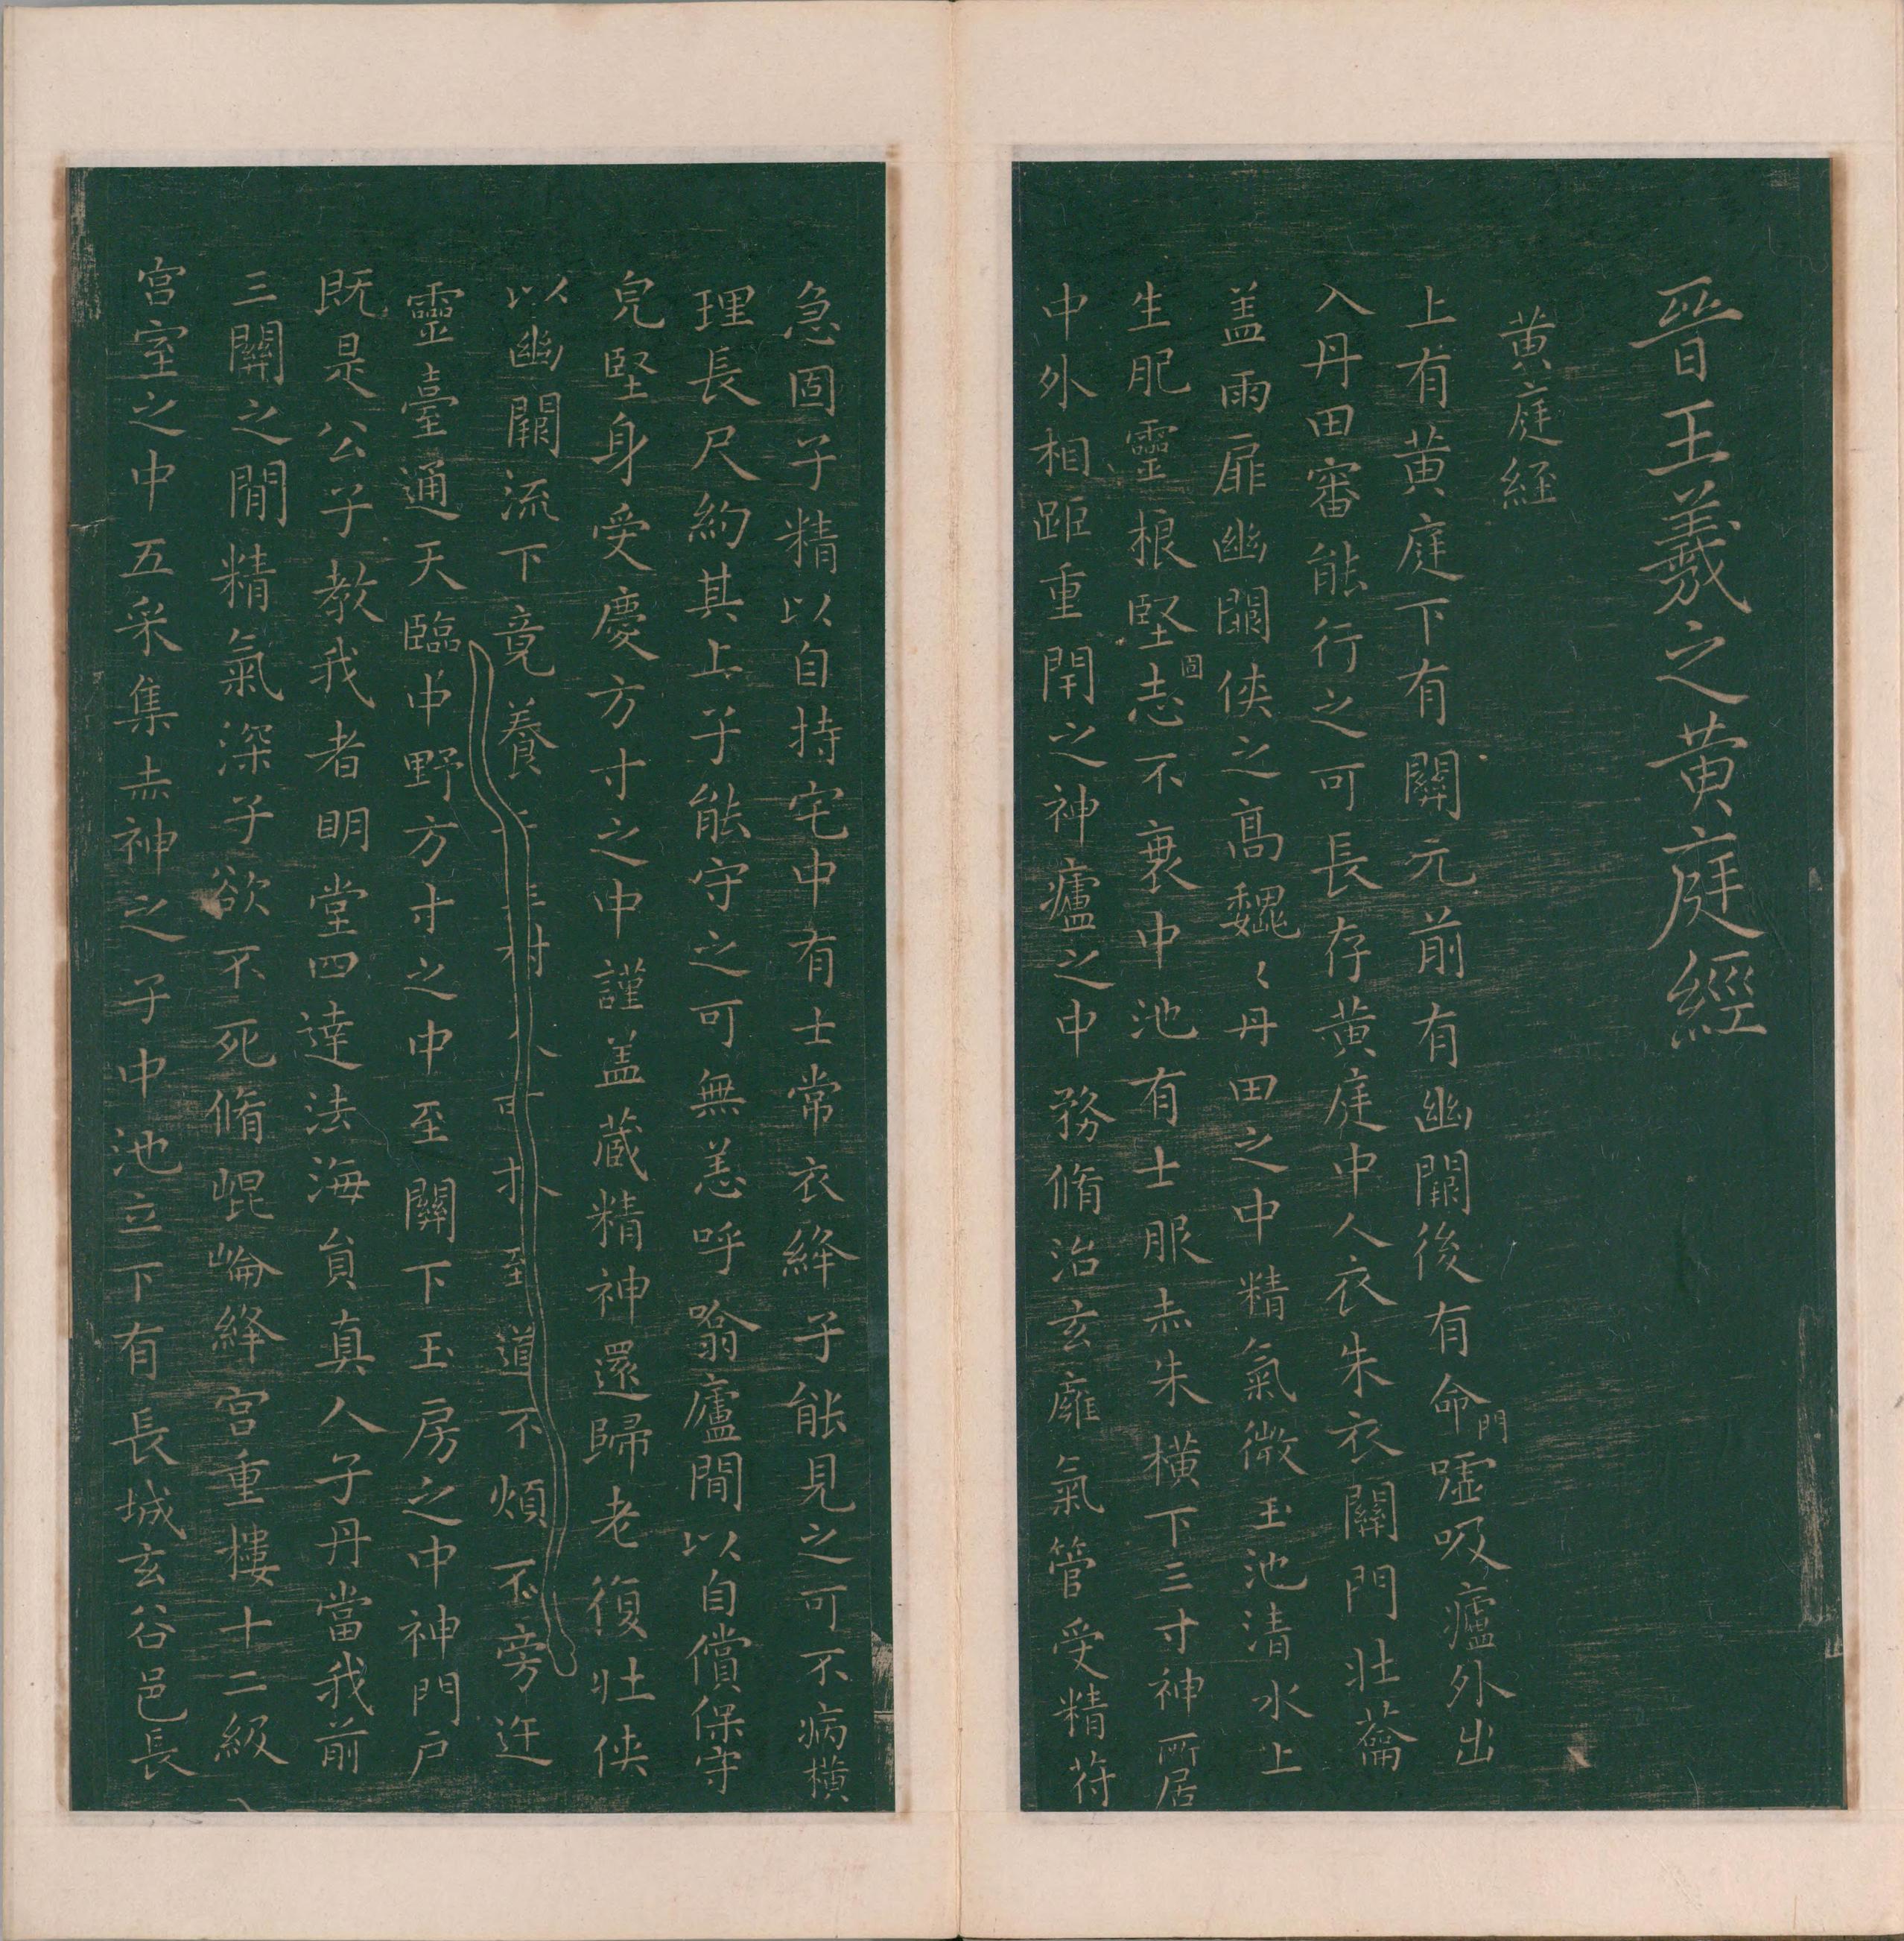 晉王羲之黄庭經
黄庭経
上有黄庭下有關元前有幽闕後有命門噓吸廬外出
入丹田審能行之可長存黄庭中人衣朱衣關門壯蘥
盖兩扉幽闕俠之高巍〻丹田之中精氣微玉池清水上
生肥靈根堅固志不衰中池有士服赤朱橫下三寸神所居
中外相距重閇之神廬之中務脩治玄癕氣管受精苻
急固子精以自持宅中有士常衣絳子能見之可不病橫
理長尺約其上子能守之可無恙呼噏廬間以自償保守
皃堅身受慶方寸之中謹盖藏精神還歸老復壯俠
以幽闕流下竟養至道不煩不旁迕
靈臺通天臨中野方寸之中至關下玉房之中神門戶
既是公子教我者明堂四達法海員真人子丹當我前
三關之間精氣深子欲不死脩崐崘絳宮重樓十二級
宮室之中五采集赤神之子中池立下有長城玄谷邑長